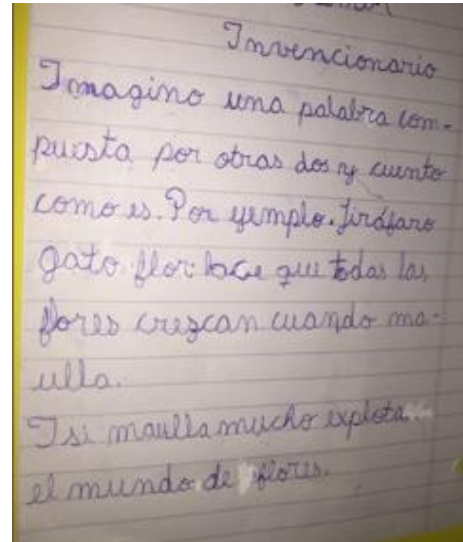 Invencionario
Imagino una palabra com-
puesta por otras dos y cuento
como es. Por ejemplo. Jirafaro
gato flor: hace que todas las
flores crezcan cuando ma-
ulla.
I si maulla mucho explota
el mundo de flores.